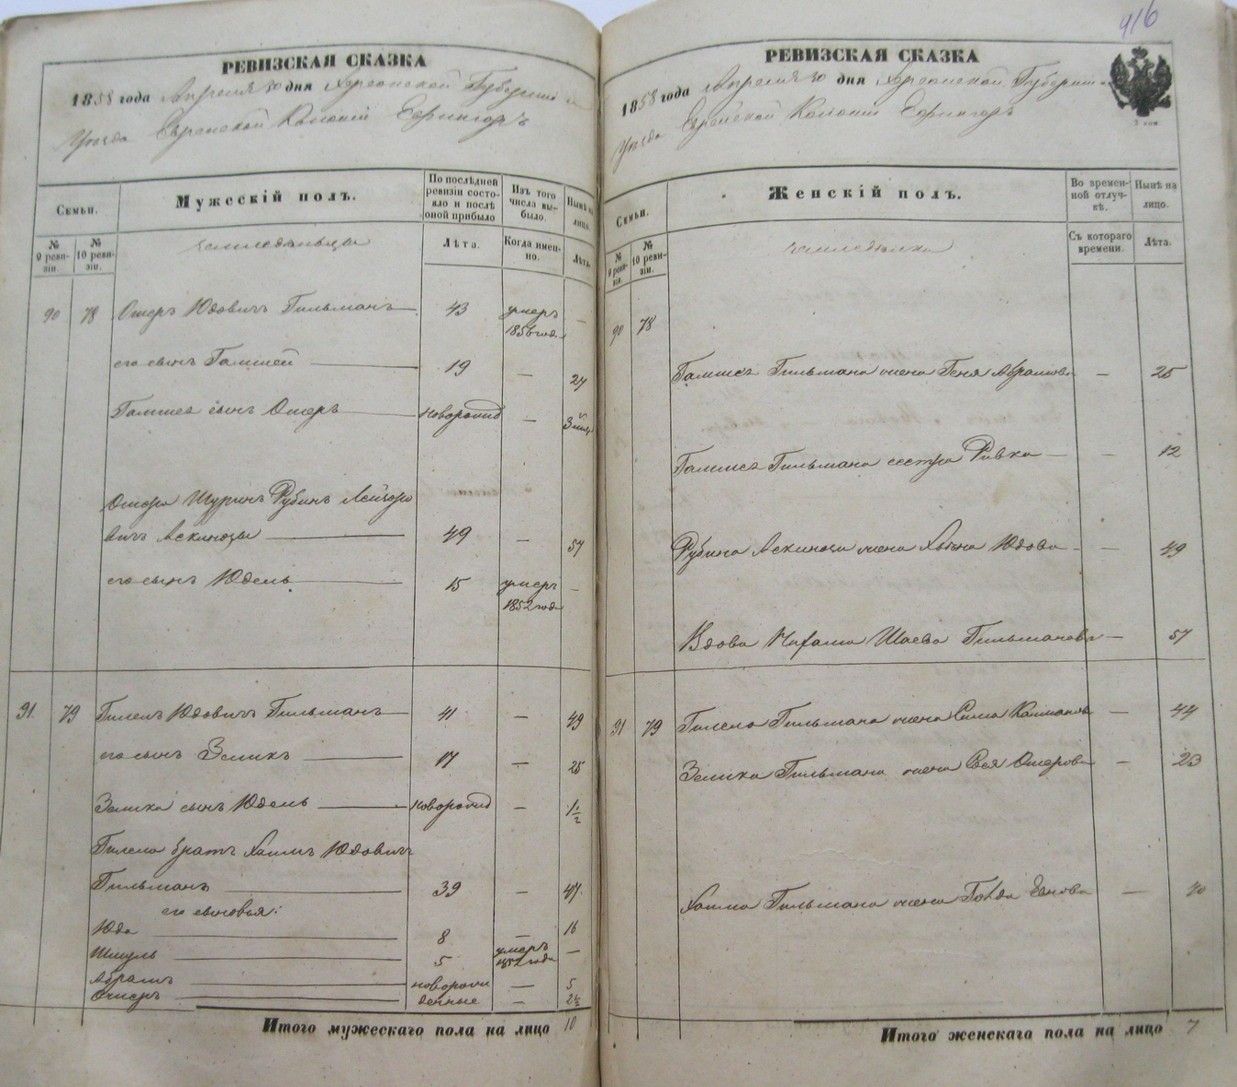 РЕВИЗСКАЯ СКАЗКА
1858 года Апреля 30 дня Херсонской Губерніи
Уѣзда Еврейской Колоніи Ефингаръ
Семьи.
Мужескій полъ.
По послѣдней ревизіи состояло и послѣ оной прибыло
Изъ того числа выбыло.
Нынѣ на лицо.
№ 9 ревизіи
№ 10 ревизіи.
Лѣта.
Когда именно.
Лѣта.
90 78 Ошеръ Юдовичъ Гильманъ 43 умеръ 1856 года —
его сынъ Гамшей 19 —
Гамшея сынъ Ошеръ новорожд —
Ошера Шуринъ Рубинъ Лейзеро
вичъ Аскинозы 49 — 57
его сынъ Юдель 15 умеръ 1852 года —
91 79 Гилель Юдовичъ Гильманъ 41 — 49
его сынъ Зеликъ 17 — 25
Зелика сынъ Юдель новорожд — 1½
Гилеля братъ Хаимъ Юдовичъ
Гильманъ 39 — 47
его сыновья:
Юда 8 — 16
Шмуль 5 умеръ 1852 года —
Абрамъ новорож — 5
Ошеръ денные — 2½
Итого мужескаго пола на лицо 10
416
РЕВИЗСКАЯ СКАЗКА
1858 года Апреля 30 дня Херсонской Губерніи
Уѣзда Еврейской Колоніи Ефингаръ
Семьи.
Женскій полъ.
Во временной отлучкѣ.
Нынѣ на лицо.
№ 9 ревизіи
№ 10 ревизіи.
Съ котораго времени.
Лѣта.
90 78
Гамшея Гильмана жена Геня Абрамова — 25
Гамшея Гильмана сестра Ривка — 12
Рубина Аскиноза жена Хаена Юдова — 49
Вдова Шаева Гильманова — 57
91 79 Гилеля Гильмана жена Сима Калманова — 44
Зелика Гильмана жена Сея Ошерова — 23
Хаима Гильмана жена Голда — 40
Итого женскаго пола на лицо 7